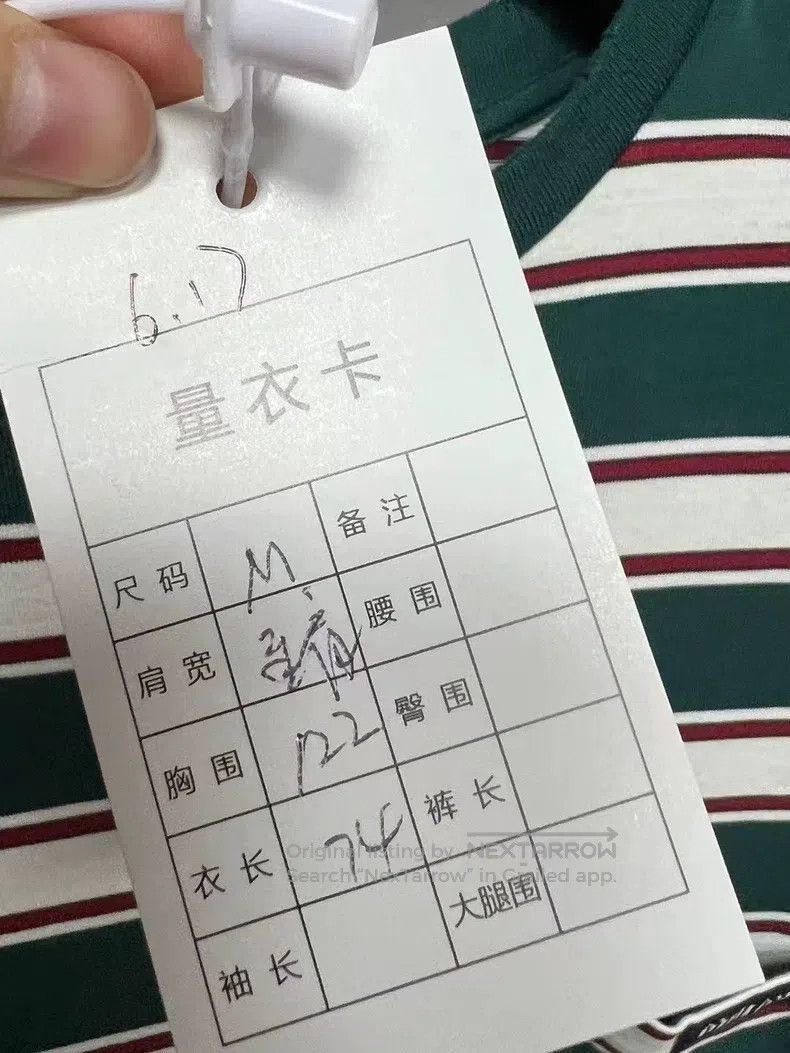 6.17
量衣卡
尺码 M 备注
肩宽 腰围
胸围 122 臀围
衣长 74 裤长
袖长 大腿围
Original listing by NEXTARROW
Search "NexTarrow" in Carried app.